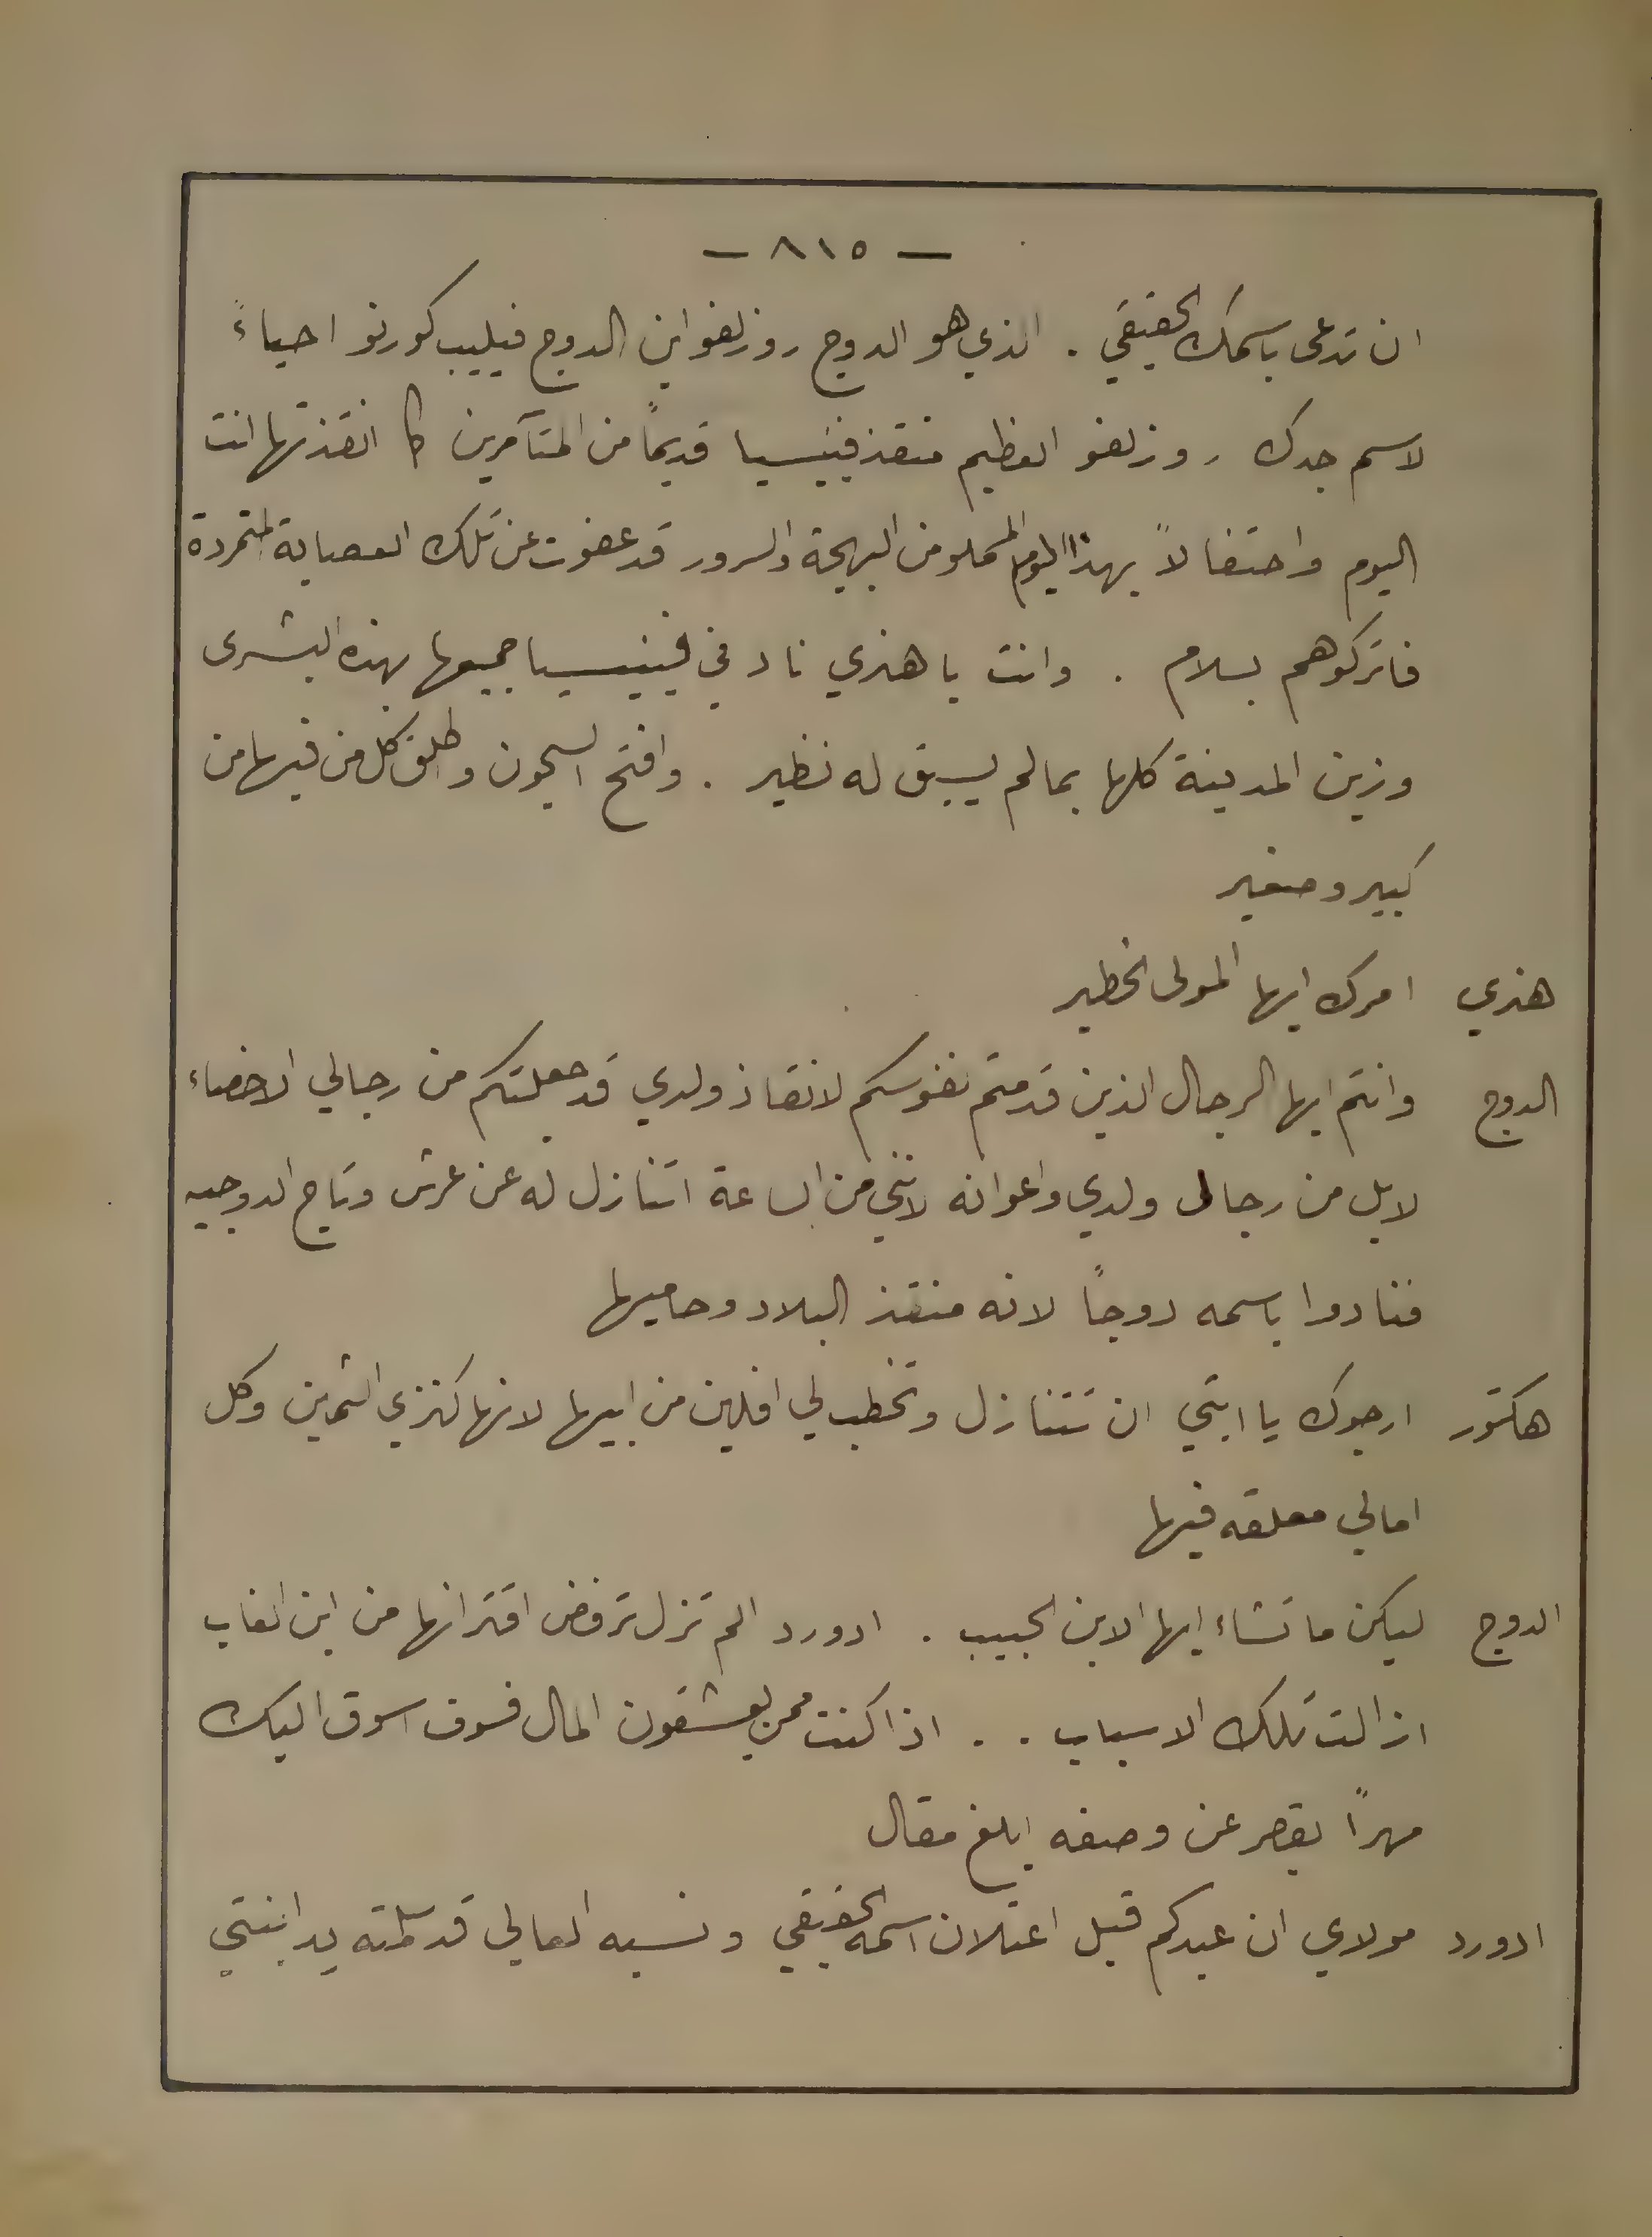 — ٨١٥ —
ان تدعى باسمك الحقيقي . الذي هو الدوج روزلفو ابن الدوج فيليب كورنو احياءً
لاسم جدك روزلفو العظيم منقذ فينيسيا قديماً من المتآمرين كما انقذتها انت
اليوم واحتفالاً بهذا اليوم المملو من البهجة والسرور قد عفوت عن تلك العصابة المتمردة
فاتركوهم بسلام . وانت يا هنري ناد في فينيسيا جميعها بهذه البشرى
وزين المدينة كلها بمالم يسبق له نظير . وافتح السجون واطلق كل من فيها من
كبير وصغير
هنري امرك ايها المولى الخطير
الدوج وانتم ايها الرجال الذين قدمتم نفوسكم لانقاذ ولدي قد جعلتكم من رجالي الاخصاء
لابل من رجال ولدي واعوانه لانني من الساعة اتنازل له عن عرش وتاج الدوجيه
فنادوا باسمه دوجاً لانه منقذ البلاد وحاميها
هكتور ارجوك يا ابتي ان تتنازل وتخطب لي افلين من ابيها لانها كنزي الثمين وكل
امالي معلقه فيها
الدوج ليكن ما تشاء ايها الابن الحبيب . ادورد الم تزل ترفض اقترانها من ابن الغاب
ازالت تلك الاسباب . . اذا كنت ممن يعشقون المال فسوف اسوق اليك
مهراً يقصر عن وصفه ابلغ مقال
ادورد مولاي ان عبدكم قبل اعتلان اسمه الحقيقي ونسبه العالي قد سلمته يد ابنتي